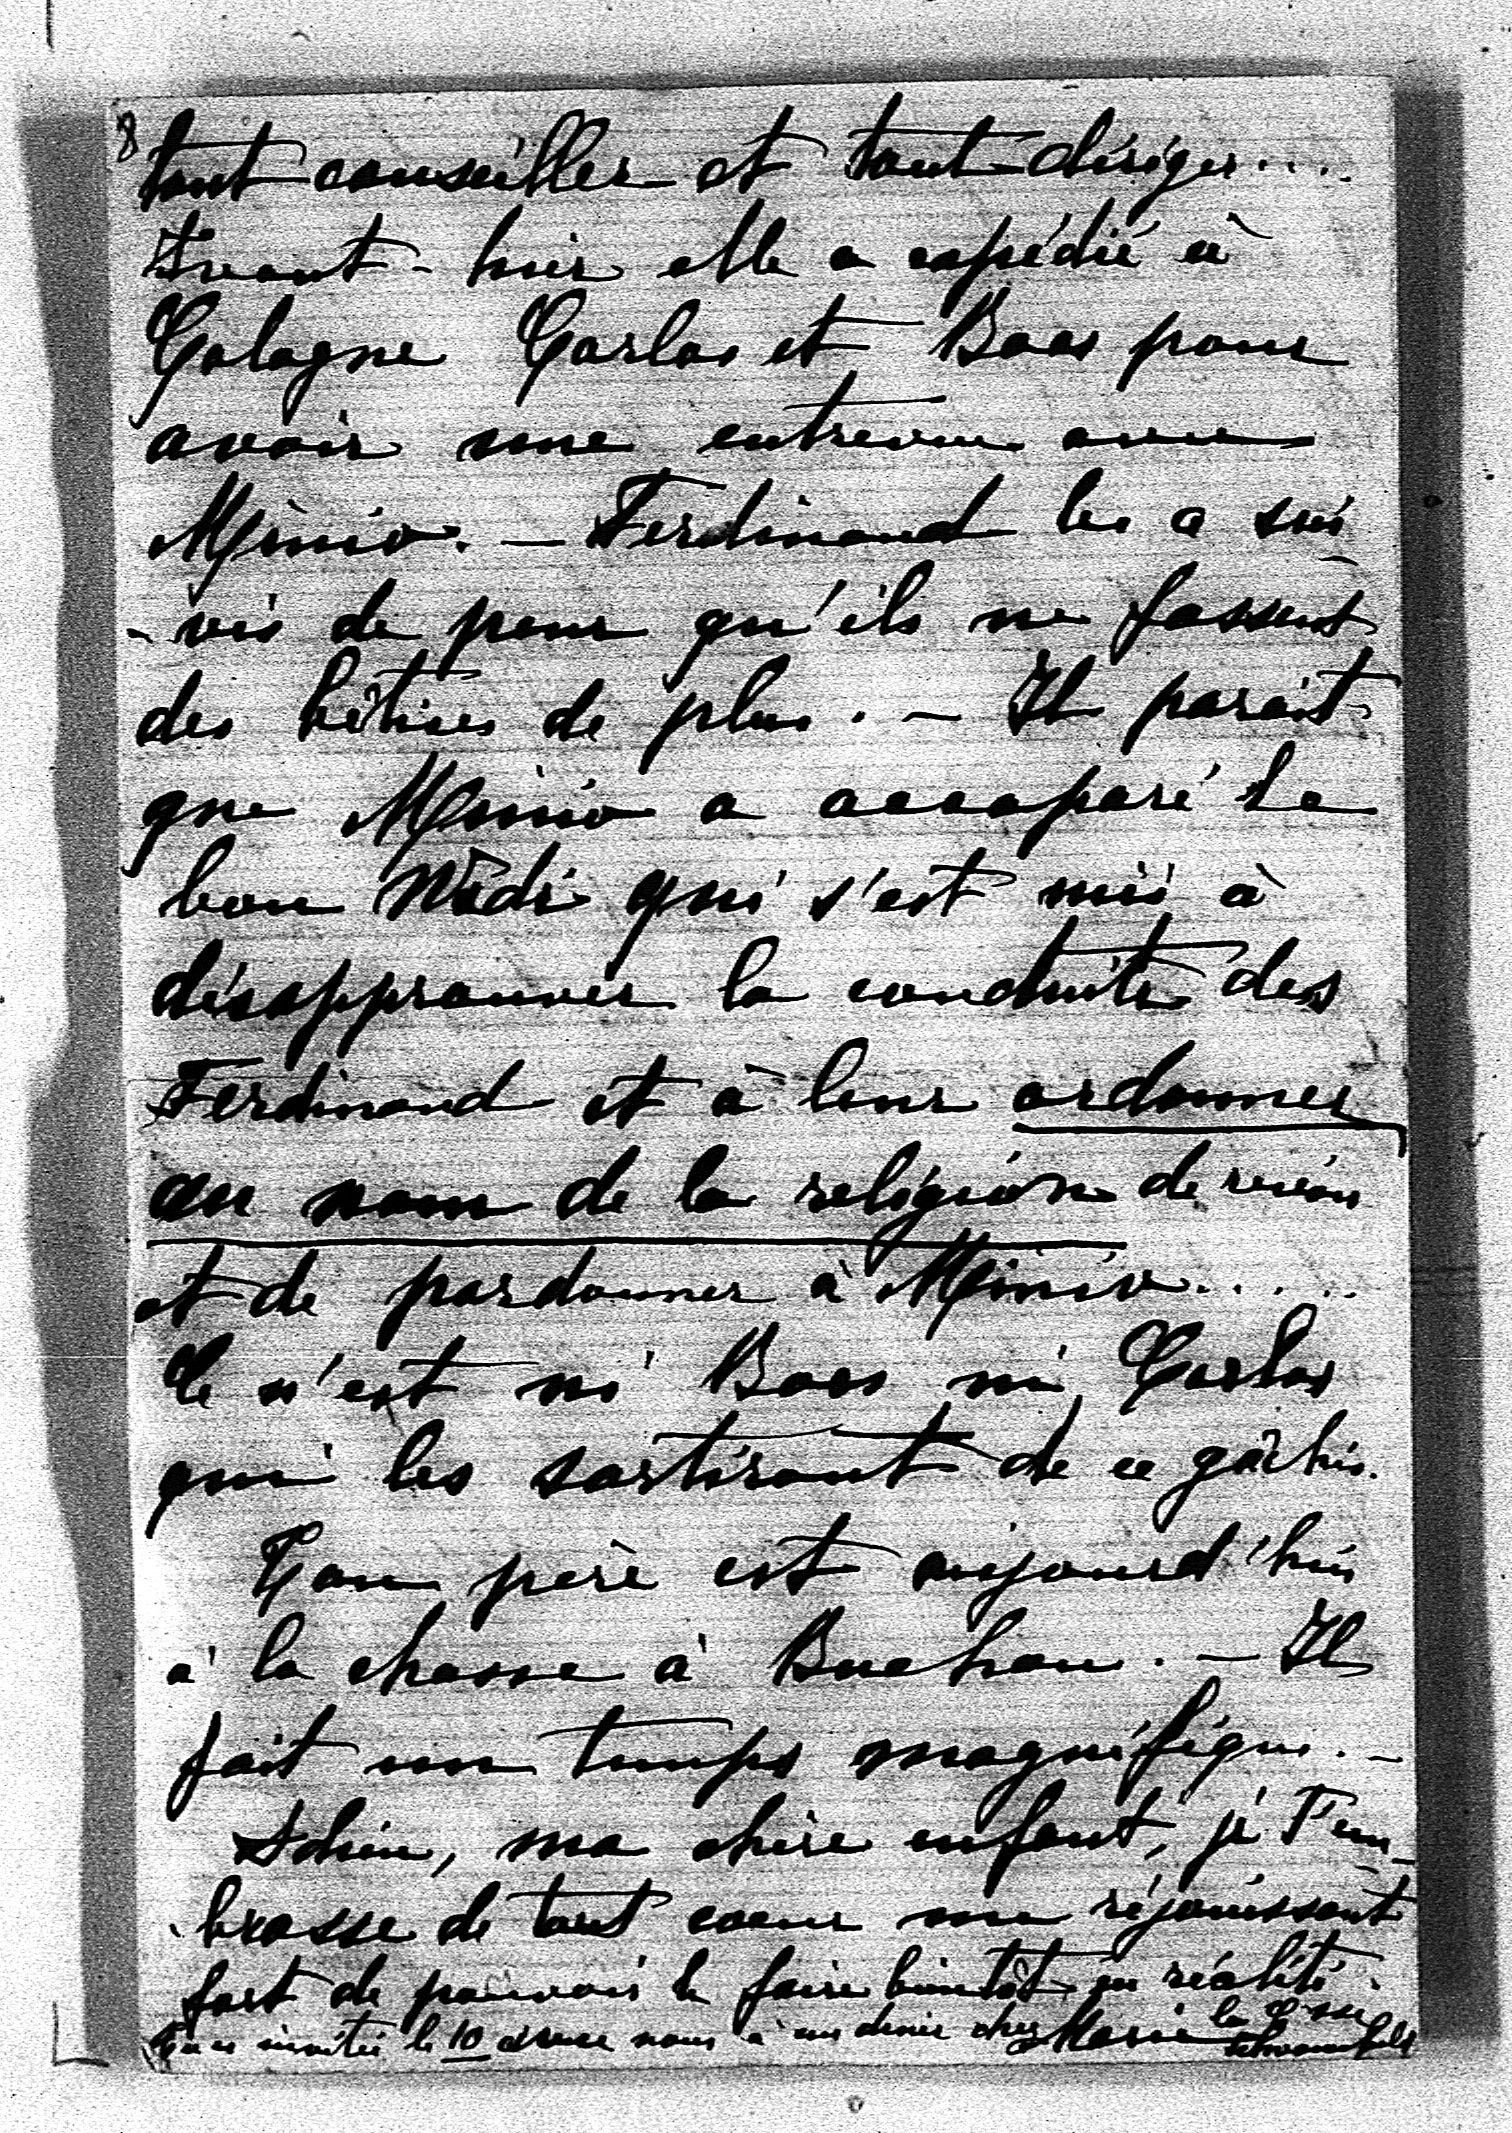 8
tout conseiller et tout diriger....
Avant-hier elle a expédié à
Cologne Carlos et Baes pour
avoir une entrevue avec
Minio. — Ferdinand les a sui
-vis de peur qu'ils ne fassent
des bêtises de plus. — Il parait
que Minio a accaparé le
bon Nédi qui s'est mis à
désapprouver la conduite des
Ferdinand et à leur ordonner
au nom de la religion de revoir
et de pardonner à Minio.....
Ce n'est ni Baes ni Carlos
qui les sortiront de ce gâchis.
Ton père est aujourd'hui
à la chasse à Buchau. — Il
fait un temps magnifique. —
Adieu, ma chère enfant, je t'em-
-brasse de tout coeur me réjouissant
fort de pouvoir le faire bientôt en réalité.
Tu es invitée le 10 avec nous à un diner chez la Csse
Marie